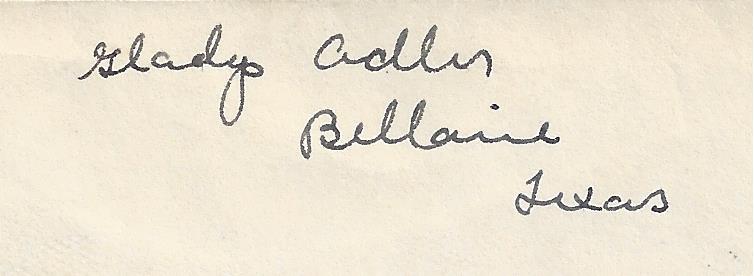 Gladys Adler
Bellaire
Texas